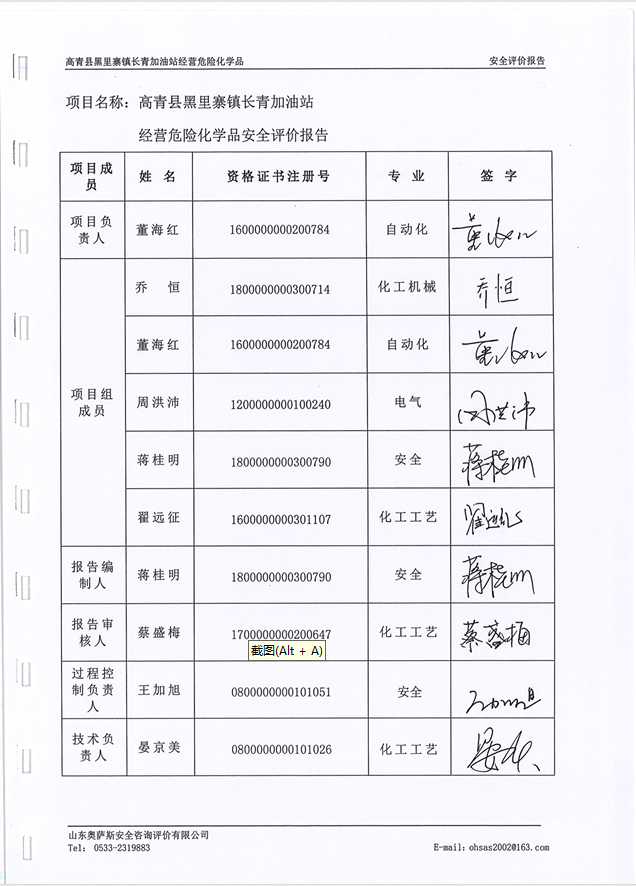 高青县黑里寨镇长青加油站经营危险化学品 安全评价报告
项目名称：高青县黑里寨镇长青加油站
经营危险化学品安全评价报告
项目成员 姓 名 资格证书注册号 专 业 签 字
项目负责人 董海红 1600000000200784 自动化 董海红
项目组成员 乔 恒 1800000000300714 化工机械 乔恒
董海红 1600000000200784 自动化 董海红
周洪沛 1200000000100240 电气 周洪沛
蒋桂明 1800000000300790 安全 蒋桂明
翟远征 1600000000301107 化工工艺 翟远征
报告编制人 蒋桂明 1800000000300790 安全 蒋桂明
报告审核人 蔡盛梅 1700000000200647 化工工艺 蔡盛梅
截图(Alt + A)
过程控制负责人 王加旭 0800000000101051 安全
技术负责人 晏京美 0800000000101026 化工工艺
山东奥萨斯安全咨询评价有限公司
Tel: 0533-2319883 E-mail:ohsas2002@163.com